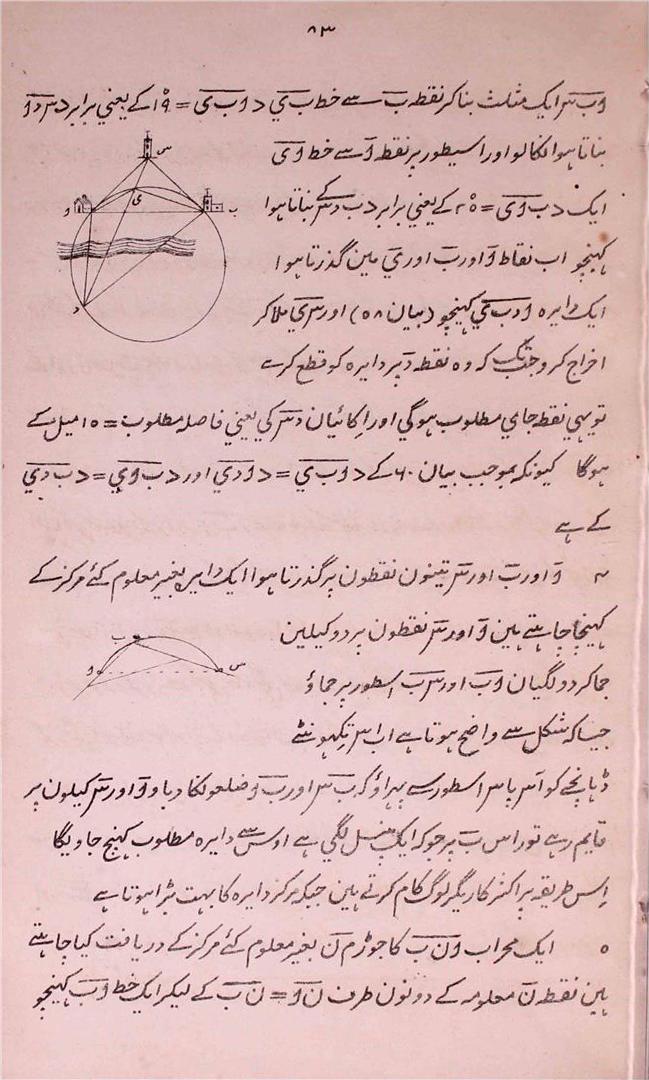 ۸۳
وَبَ سَ ایک مثلث بناکر نقطہ بَ سے خط بَ يَ د وَ بَ یَ = ۱۹° کے یعني برابر د سَ دَ وَ
بناتا ہوا نکالو اور اسیطور پر نقطہ وَ سے خط وَ یَ
ایک د بَ وَ یَ = ۲۵° کے یعني برابر د بَ دَ سَ کے بناتا ہوا
کہینچو اب نقاط وَ اور بَ اور يَ مین گذرتا ہوا
ایک دایرہ وَ دَ بَ يَ کہینچو (بیان ۵۸) اور سَ يَ ملاکر
اخراج کرو جبتک کہ وہ نقطہ دَ پر دایرہ کو قطع کرے
تو یہي نقطہ جاي مطلوب ہوگي اور اکائیان دَ سَ کي یعني فاصلہ مطلوب = ۱۵ میل کے
ہوگا کیونکہ بموجب بیان ۶۰ کے د وَ بَ يَ = د وَ دَ يَ اور د بَ وَ يَ = د بَ دَ يَ
کے ہے
۴ وَ اور بَ اور سَ تینون نقطون پر گذرتا ہوا ایک دایرہ بغیر معلوم کئے مرکز کے
کہینچا چاہتے ہین وَ اور سَ نقطون پر دو کیلین
جماکر دو لگیان وَ بَ اور سَ بَ اسطور پر جماؤ
جیساکہ شکل سے واضح ہوتا ہے اب اس تکہونٹے
ڈہانچے کو آس پاس اسطور سے پہراؤ کہ بَ سَ اور بَ وَ ضلعونکا دباو وَ اور سَ کیلون پر
قایم رہے تو راس بَ پر جو کہ ایک پنسل لگي ہے اوس سے دایرہ مطلوب کہنچ جاویگا
اِس طریقہ پر اکثر کاریگر لوگ کام کرتے ہین جبکہ مرکز دایرہ کا بہت بڑا ہوتا ہے
۵ ایک محراب وَ نَ بَ کا جوڑ مَ نَ بغیر معلوم کئے مرکز کے دریافت کیا چاہتے
ہین نقطہ نَ معلومہ کے دونون طرف نَ وَ = نَ بَ کے لیکر ایک خط وَ بَ کہینچو
س
ي
و
ب
د
ب
و
س